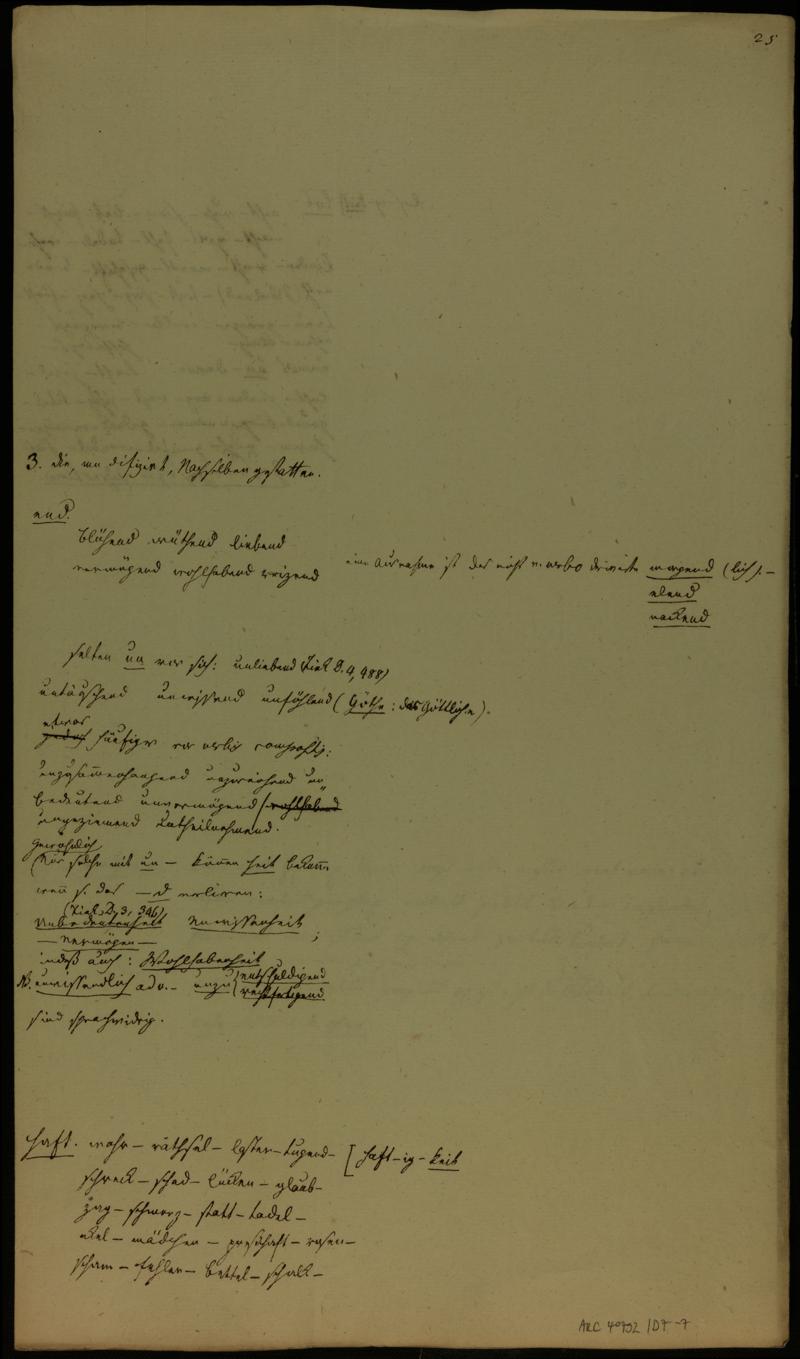 25
3. die, un difigirt, Nachsilben gestatten.
end.
blühend wüthend liebend
vermögend wohlhabend reizend
eine Ausnahme ist das nicht v. verbo derivirte morgend (lich). –
elend
nackend
selten un vor sich: unliebend (Tiek D. 9, 488)
untäuschend unwissend unfühlend (Göthe: das Göttliche).
etwas
häufiger vor verbis compositis:
unzusammenhangend unzureichend un„
bedeutend unvermögend / wohlhabend
ungeziemend Untheilnehmend.
Gewöhnlich
(Nur solche mit un – können heit bekom̅
wenn s. das – d verlieren:
(Tiek D. 3, 346)
Unbedeutenheit Unwissenheit
– vermögen – ;
indeß auch: Wohlhabenheit
NB. unwissendlich adv. – unzu (entschuldigend
rechtfertigend
sind sprachwidrig.
haft. wahr – räthsel – laster – tugend – [haft – ig – keit
schreck – schad – lücken – glaub –
zag – schmerz – statt – tadel –
ekel – mädchen – – rosen –
scham – fehler – bettel – schalk –
ARC 40792 / D7-7